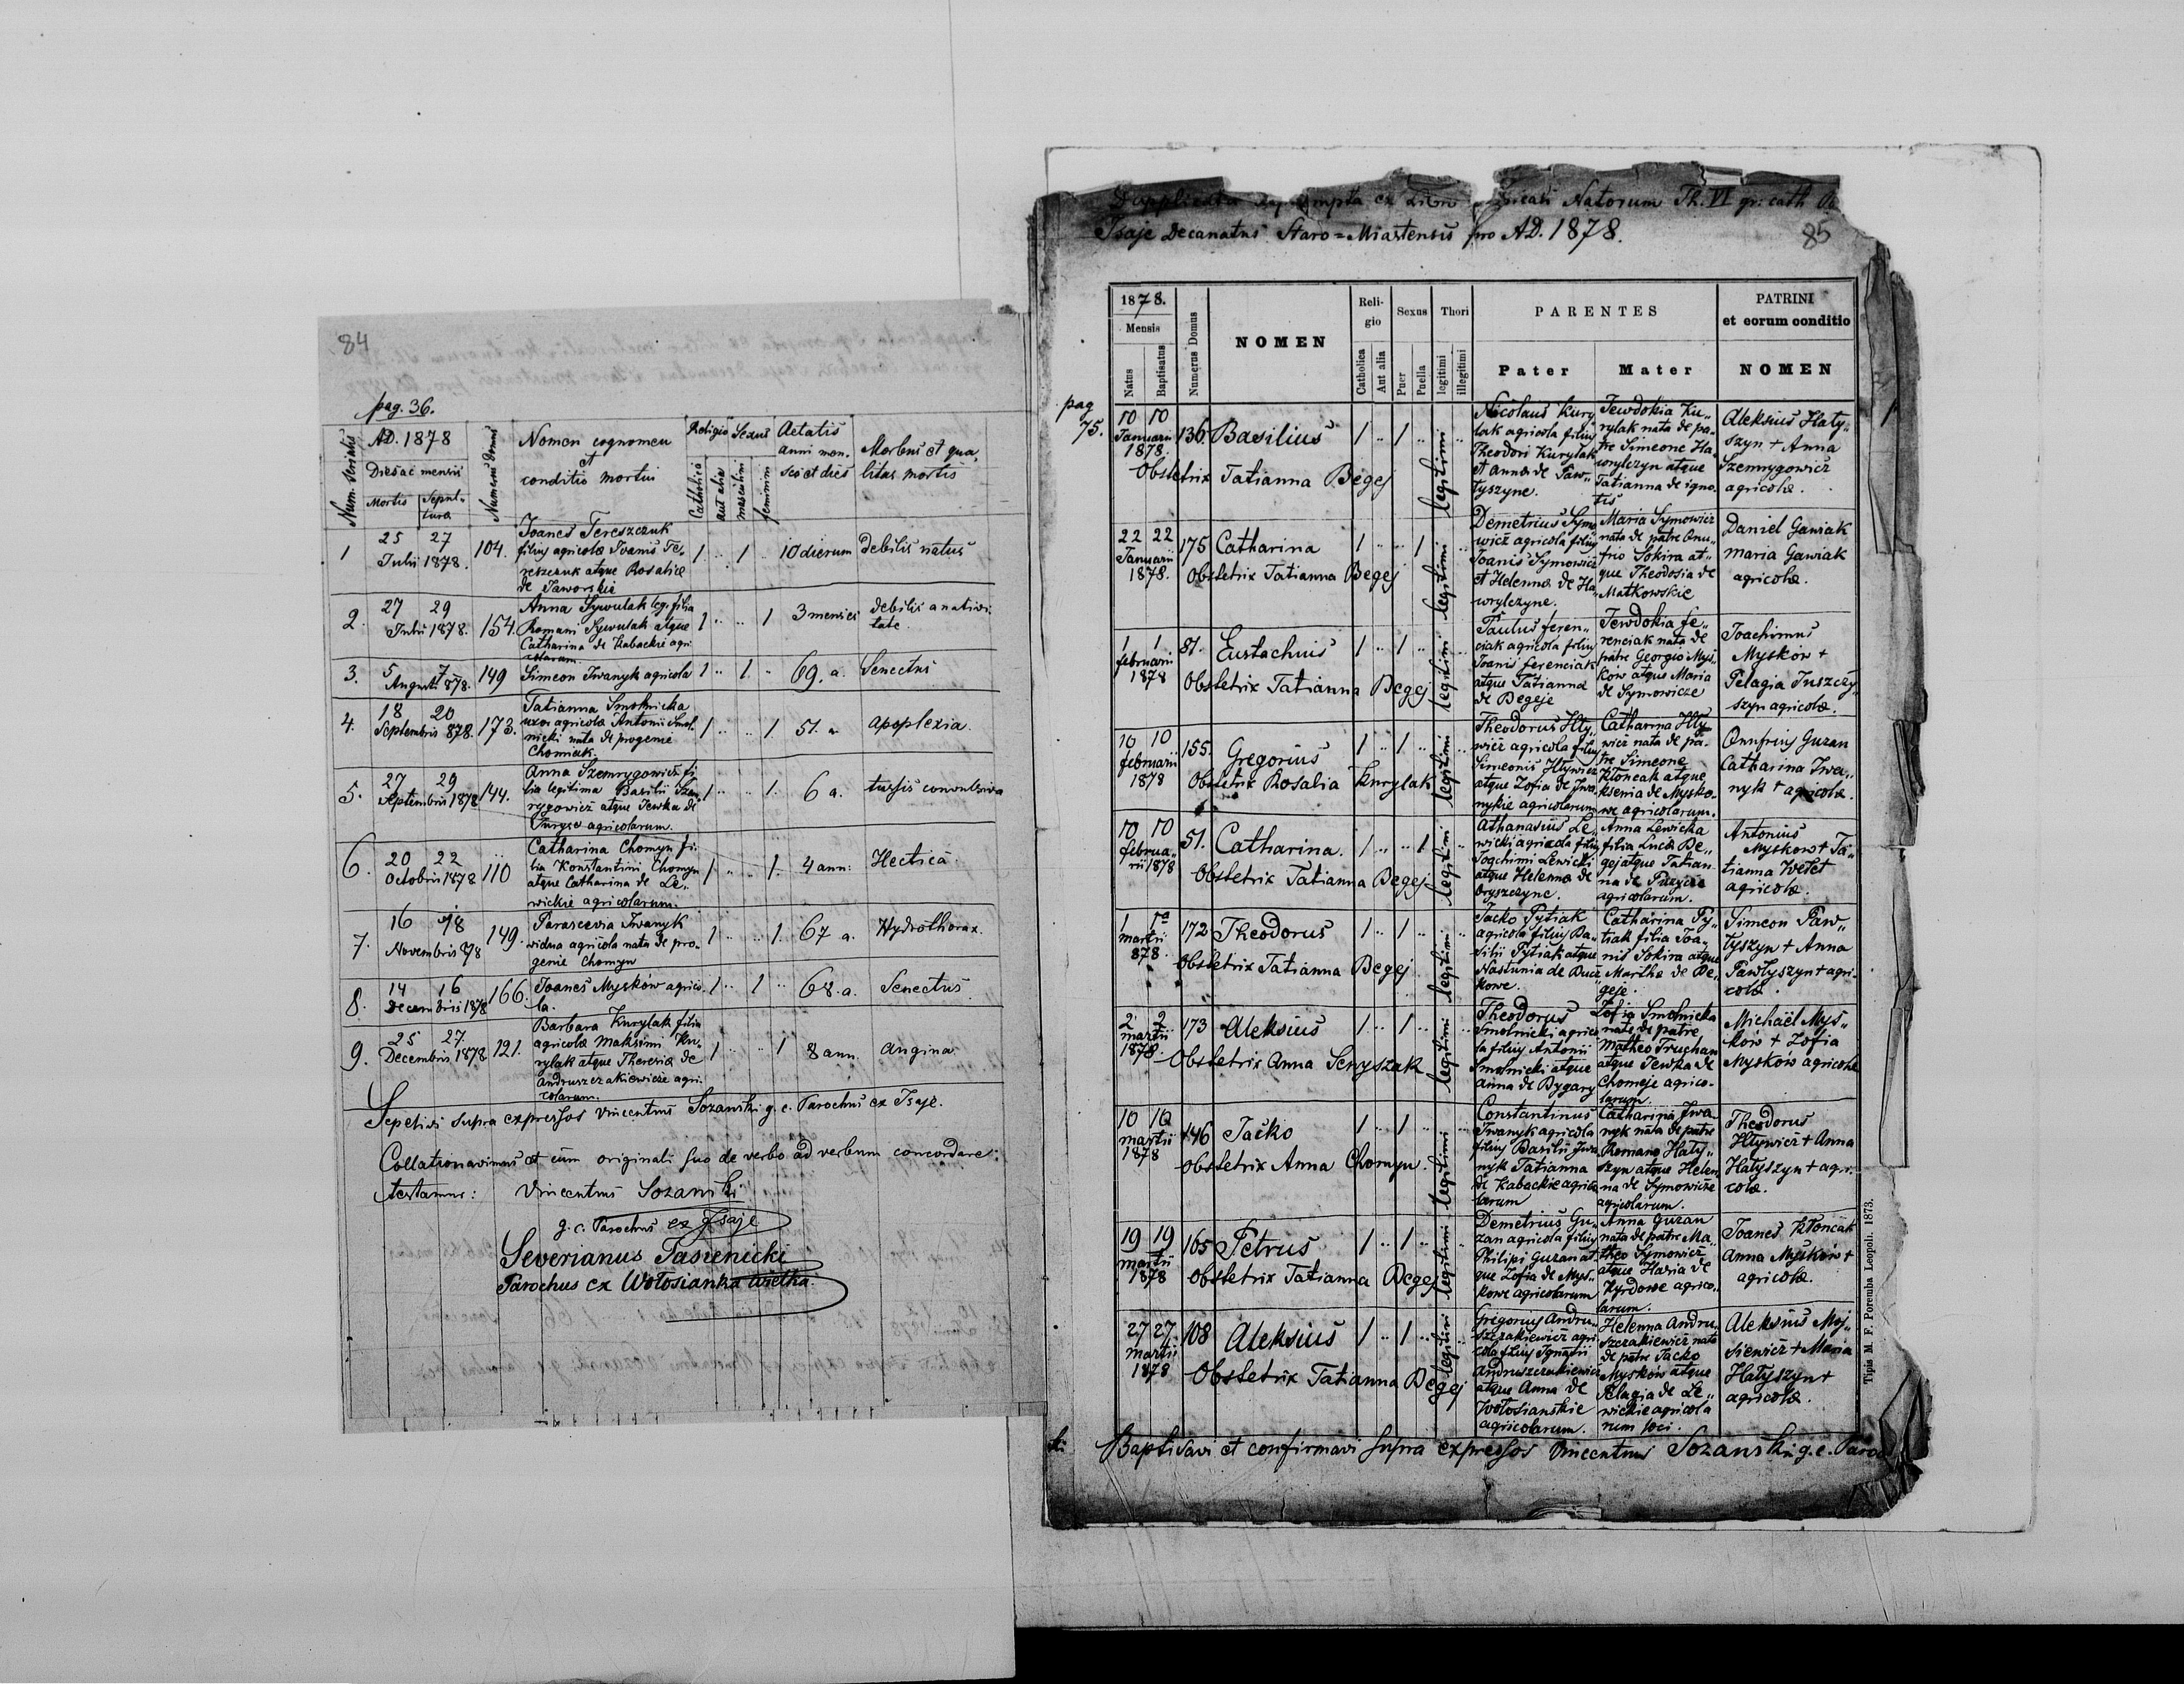 84
pag. 36.
Num. Serialis
AD. 1878
Dies ac mensis
Mortis
Sepulturæ
Numerus Domus
Nomen cognomen
et
conditio mortui
Religio
Catholica
aut alia
Sexus
masculini
feminini
Aetatis
anni men.
ses et dies
Morbus et qua,
litas mortis
1
25 27
Julii 1878.
104.
Joanes Tereszczuk
filius agricolæ Joanis Te,
reszczuk atque Rosaliæ
de Jaworskie
1 .. 1 ..
10 dierum
debilis natus
2.
27 29
Julii 1878.
154.
Anna Sywulak leg. filia
Romani Sywulak atque
Catharina de Kabackie agri
colarum.
1 .. .. 1
3 menses
debilis a nativi
tate
3.
5 7
Augusti 878.
149
Simeon Iwanyk agricola
1 .. 1. ..
69. a.
Senectus
4.
18 20
Septembris 878.
173.
Tatianna Smolnicka
uxor agricolæ Antonii Smol,
nicki nata de progenie
Chomiak.
1 .. .. 1.
51. a
apoplexia.
5.
27 29
Septembris 1878
144.
Anna Szemrygowicz fi
lia legitima Basilii Szem
rygowicz atque Jewka de
agricolarum.
1 .. .. 1.
6 a.
tussis convulsiva
6.
20 22
Octobris 1878
110
Catharina Chomyn fi.
lia Konstantini Chomyn
atque Catharina de Le,,
wickie agricolarum.
1 .. .. 1.
4 ann:
Hectica.
7.
16 18
Novembris 878
149.
Parascevia Iwanyk
vidua agricola nata de pro,
genie Chomyn
1 .. .. 1.
67 a.
Hydrothorax.
8.
14 16
Decembris 1878
166.
Joanes Mysków agrico.
la.
1 .. 1 ..
68. a.
Senectus
9.
25 27.
Decembris 1878
121.
Barbara Kurylak filia
agricolæ Maksimi Ku,
rylak atque Theresiæ de
Andruszczakiewicze agri.
colarum.
1 .. .. 1
8 ann.
Angina
Sepelivi supra expressos Vincentius Sozanski g. c. Parochus ex Isaje.
Collationavimus et cum originali suo de verbo ad verbum concordare
testamur: Vincentius Sozanski
g. c. Parochus ex Isaje
Severianus Jasienicki
Parochus ex Wołosianka wielka.
Libri Natorum Th. VI gr: cath
Isaje Decanatus Staro=Miastensis pro AD. 1878.
85
1878.
Mensis
Natus
Baptisatus
Numerus Domus
NOMEN
Reli-
gio
Catholica
Aut alia
Sexus
Puer
Puella
Thori
legitimi
illegitimi
PARENTES
Pater
Mater
PATRINI
et eorum conditio
NOMEN
pag
75.
10 10
Januarii
1878.
136.
Basilius
Obstetrix Tatianna Begej
1 .. 1 ..
legitimi
Nicolaus Kury
lak agricola filius
Theodori Kurylak
et Annæ de Paw,,
tyszyne.
Jewdokia Ku,,
rylak nata de pa,
tre Simeone Ha,
wrylczyn atque
Tatianna de igno.
tis
Aleksius Haty,,
szyn + Anna
Szemrygowicz
agricolæ.
22 22
Januarii
1878.
175
Catharina
Obstetrix Tatianna Begej
1 .. .. 1
legitimi
Demetrius Symo
wicz agricola filius
Joanis Symowicz
et Helenna de Ha,
wrylczyne.
Maria Symowicz
nata de patre Onu,,
frio Sokira at,,
que Theodosia de
Matkowskie
Daniel Gawiak
Maria Gawiak
agricolæ.
1 1
februarii
1878
81.
Eustachius
Obstetrix Tatianna Begej
1 .. 1 ..
legitimi
Paulus feren,,
ciak agricola filius
Joanis ferenciak
atque Tatianna
de Begeje
Jewdokia fe,,
renciak nata de
patre Georgio Mys,
kow atque Maria
de Symowicze
Joachimus
Mysków +
Pelagia Juszczy,,
szyn agricolæ.
10 10
februarii
1878
155.
Gregorius
Obstetrix Rosalia Kurylak
1 .. 1 ..
legitimi
Theodorus Hły,,
wicz agricola filius
Simeonis Hływicz
atque Zofia de Iwa,
nykie agricolarum
Catharina Hły
wicz nata de pa,
tre Simeone
Kłoncak atque
Ksenia de Mysko,
we agricolarum.
Onufrius Guzan
Catharina Iwa,,
nyk + agricolæ.
10 10
februa,,
rii 1878
51.
Catharina.
Obstetrix Tatianna Begej
1 .. .. 1
legitimi
Athanasius Le,
wicki agricola filius
Joachimi Lewicki
atque Helenna de
Oryszczyne.
Anna Lewicka
filia Lucæ Be,,
gej atque Tatian,
na de
agricolarum.
Antonius
Mysków + Ta,,
tianna
agricolæ.
1 1
martii
878.
172
Theodorus
Obstetrix Tatianna Begej
1 .. 1 ..
legitimi
Jacko Pytiak
agricola filius Ba,
silii Pytiak atque
Nastunia de
kowe.
Catharina Py,
tiak filia Joa,,
nis Sokira atque
Martha de Be,
geje.
Simeon Paw,,
tyszyn + Anna
Pawtyszyn + agri,
colæ.
2 2
martii
1878.
173
Aleksius
Obstetrix Anna Senyszak
1 .. 1 ..
legitimi
Theodorus
Smolnicki agrico
la filius Antonii
Smolnicki atque
Anna de Dygary
Zofia Smolnicka
nata de patre
Matheo Truchan
atque Jewka de
Chomeje agrico-
larum.
Michaël Mys,,
ków + Zofia
Mysków agricolæ
10 10
martii
1878
146
Jaćko
Obstetrix Anna Chomyn.
1 .. 1 ..
legitimi
Constantinus
Iwanyk agricola
filius Basilii Iwa
nyk Tatianna
de Kabackie agrico
larum
Catharina Iwa
nyk nata de patre
Romano Haty,,
szyn atque Helen,
na de Symowicze
agricolarum.
Theodorus
Hływicz + Anna
Hatyszyn + agri.
colæ.
19 19
martii
1878
165
Petrus
Obstetrix Tatianna Begej
1 .. 1 ..
legitimi
Demetrius Gu,
zan agricola filius
Philipi Guzan at
que Zofia de Mys,,
kowe agricolarum
Anna Guzan
nata de patre Ma,,
theo Symowicz
atque Maria de
Kyrdowe agrico,
larum.
Joanes Kłoncak
Anna Mysków +
agricolæ.
27 27.
martii
1878
108
Aleksius
Obstetrix Tatianna Begej
1 .. 1 ..
legitimi
Gregorius Andru,,
szczakiewicz agri
cola filius Ignatii
Andruszczakiewicz
atque Anna de
Wołosianskie
agricolarum.
Helenna Andru,
szczakiewicz nata
de patre Jacko
Mysków atque
Pelagia de Le,,
wickie agricola
rum loci.
Aleksius Moj,,
siewicz + Maria
Hatyszyn +
agricolæ.
Baptisavi et confirmavi supra expressos Vincentius Sozanski g. c. Paroc
Tipis M. F. Poremba Leopoli. 1873.